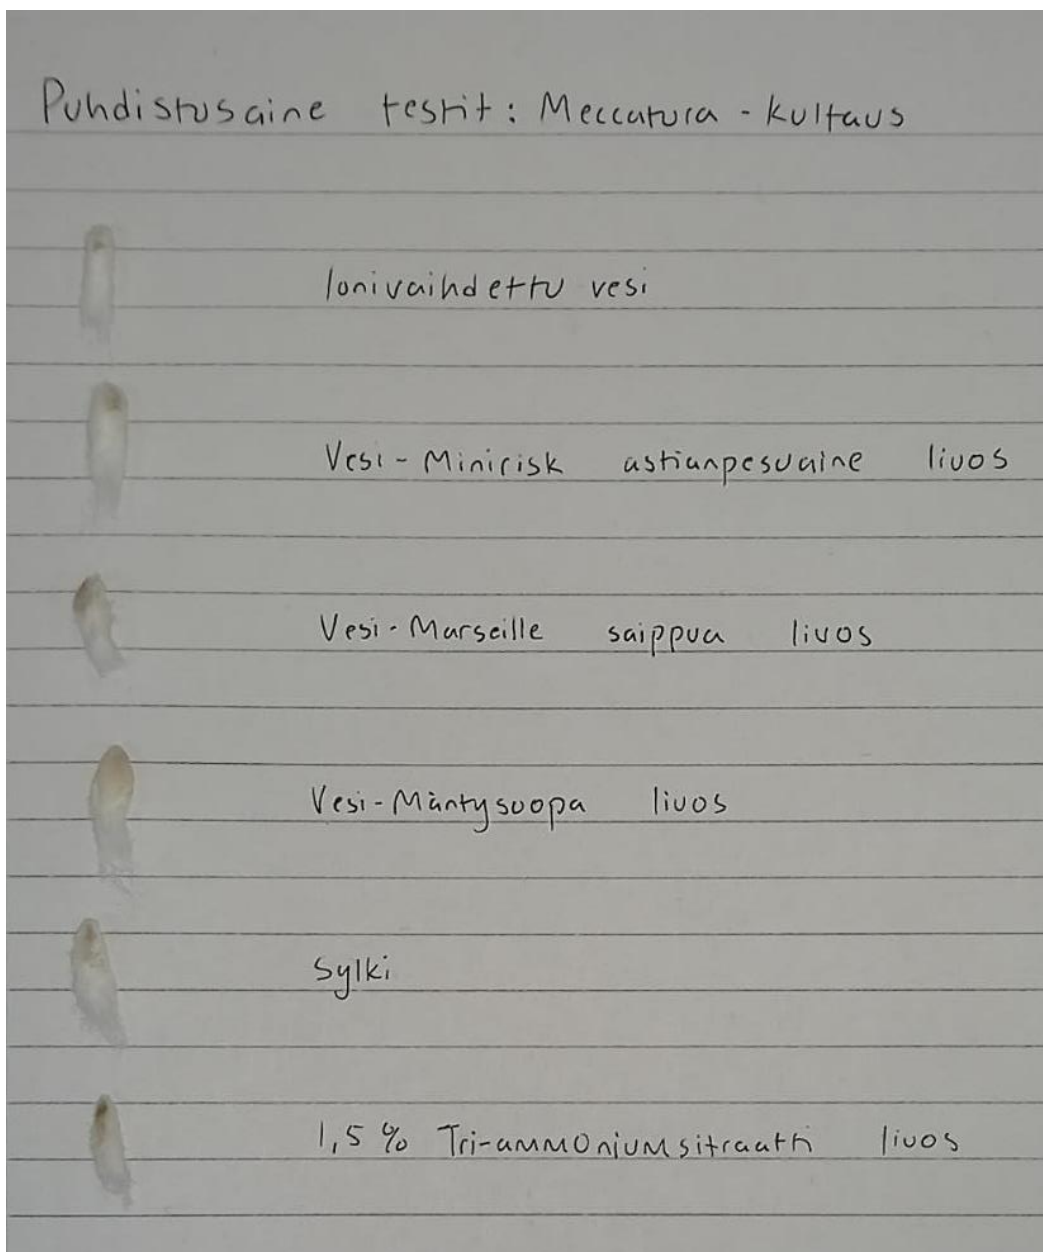 Puhdistusaine testit: Meccatura - kultaus
Ionivaihdettu vesi
Vesi - Minirisk astianpesuaine liuos
Vesi - Marseille saippua liuos
Vesi - Mäntysuopa liuos
Sylki
1,5 % Tri-ammoniumsitraatti liuos